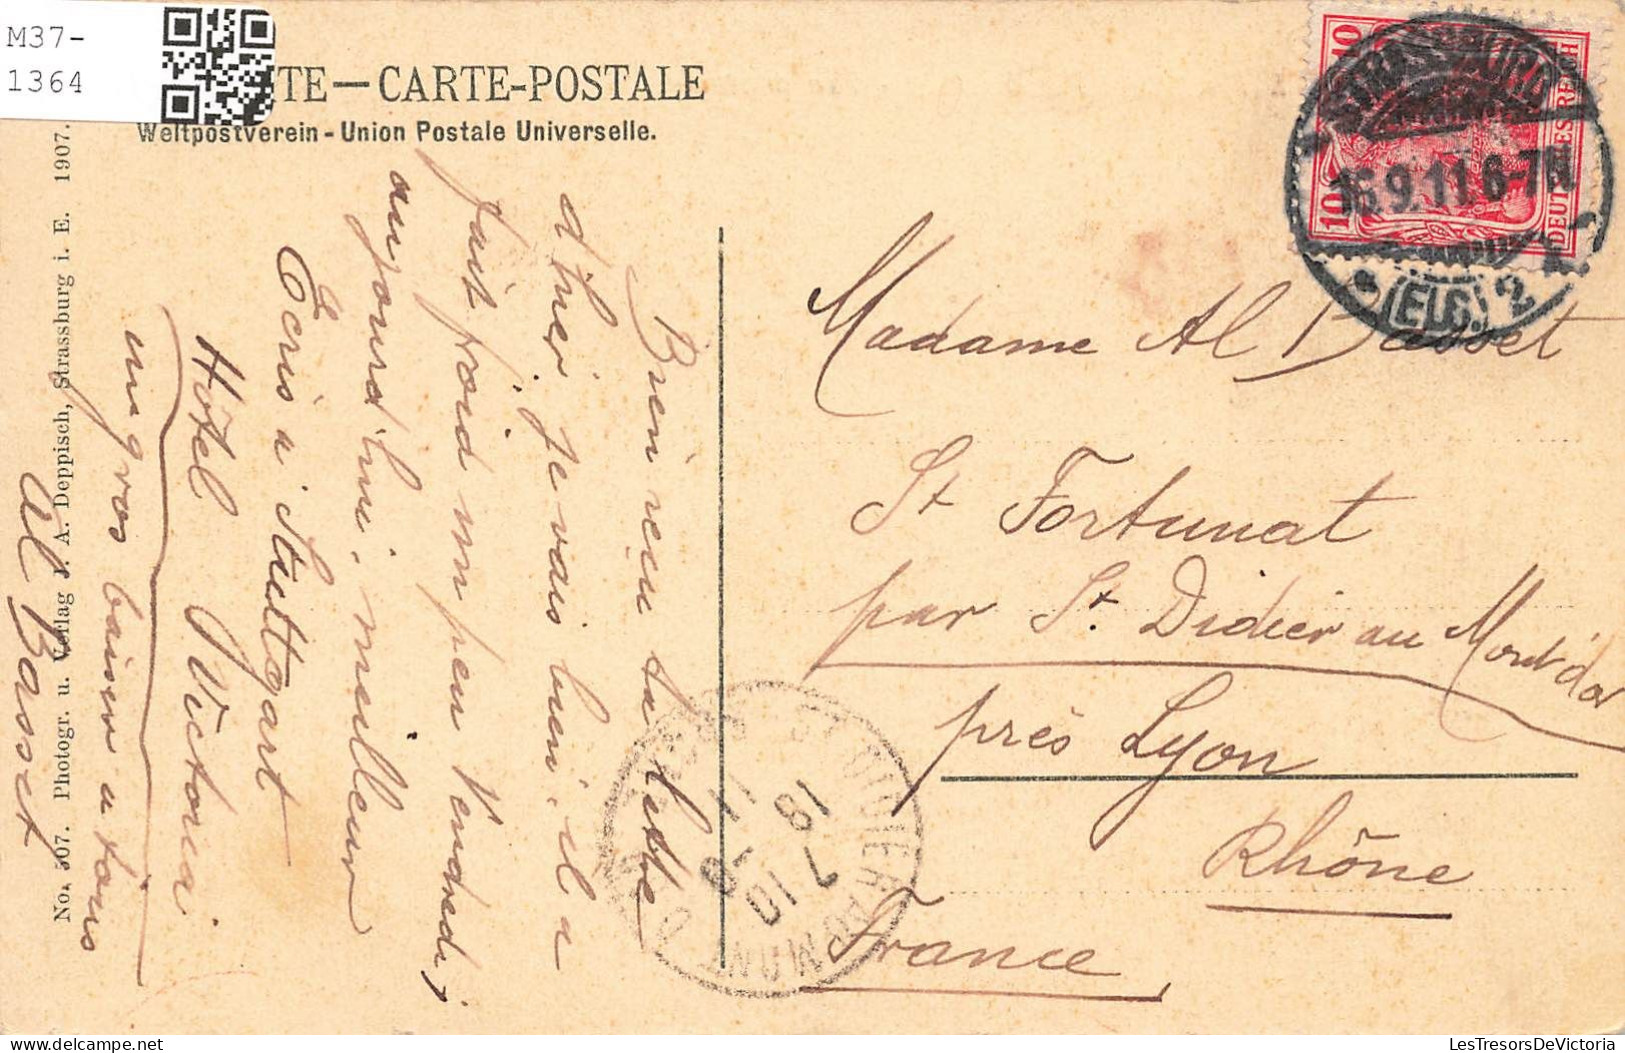 M37-
1364
TE — CARTE-POSTALE
Weltpostverein - Union Postale Universelle.
No. 507. Photogr. u. Verlag J. A. Deppisch, Strassburg i. E. 1907.
Bien reçu ta lettre
d'hier, je vais bien, il a
fait froid un peu Vendredi,
aujourd'hui, meilleur
Ecris à Stuttgart
Hôtel Victoria
un gros baiser a tous
Al Basset
STRASSBURG
16.9.11.6-7N
(ELS.) 2
10
10
DEUTSCHES REICH
Madame Al Basset
St Fortunat
par St. Didier au Mont d'or
près Lyon
Rhône
France
ST DIDIER AU MONT D'OR
7 10
19 -9
11
LesTresorsDeVictoria
© www.delcampe.net